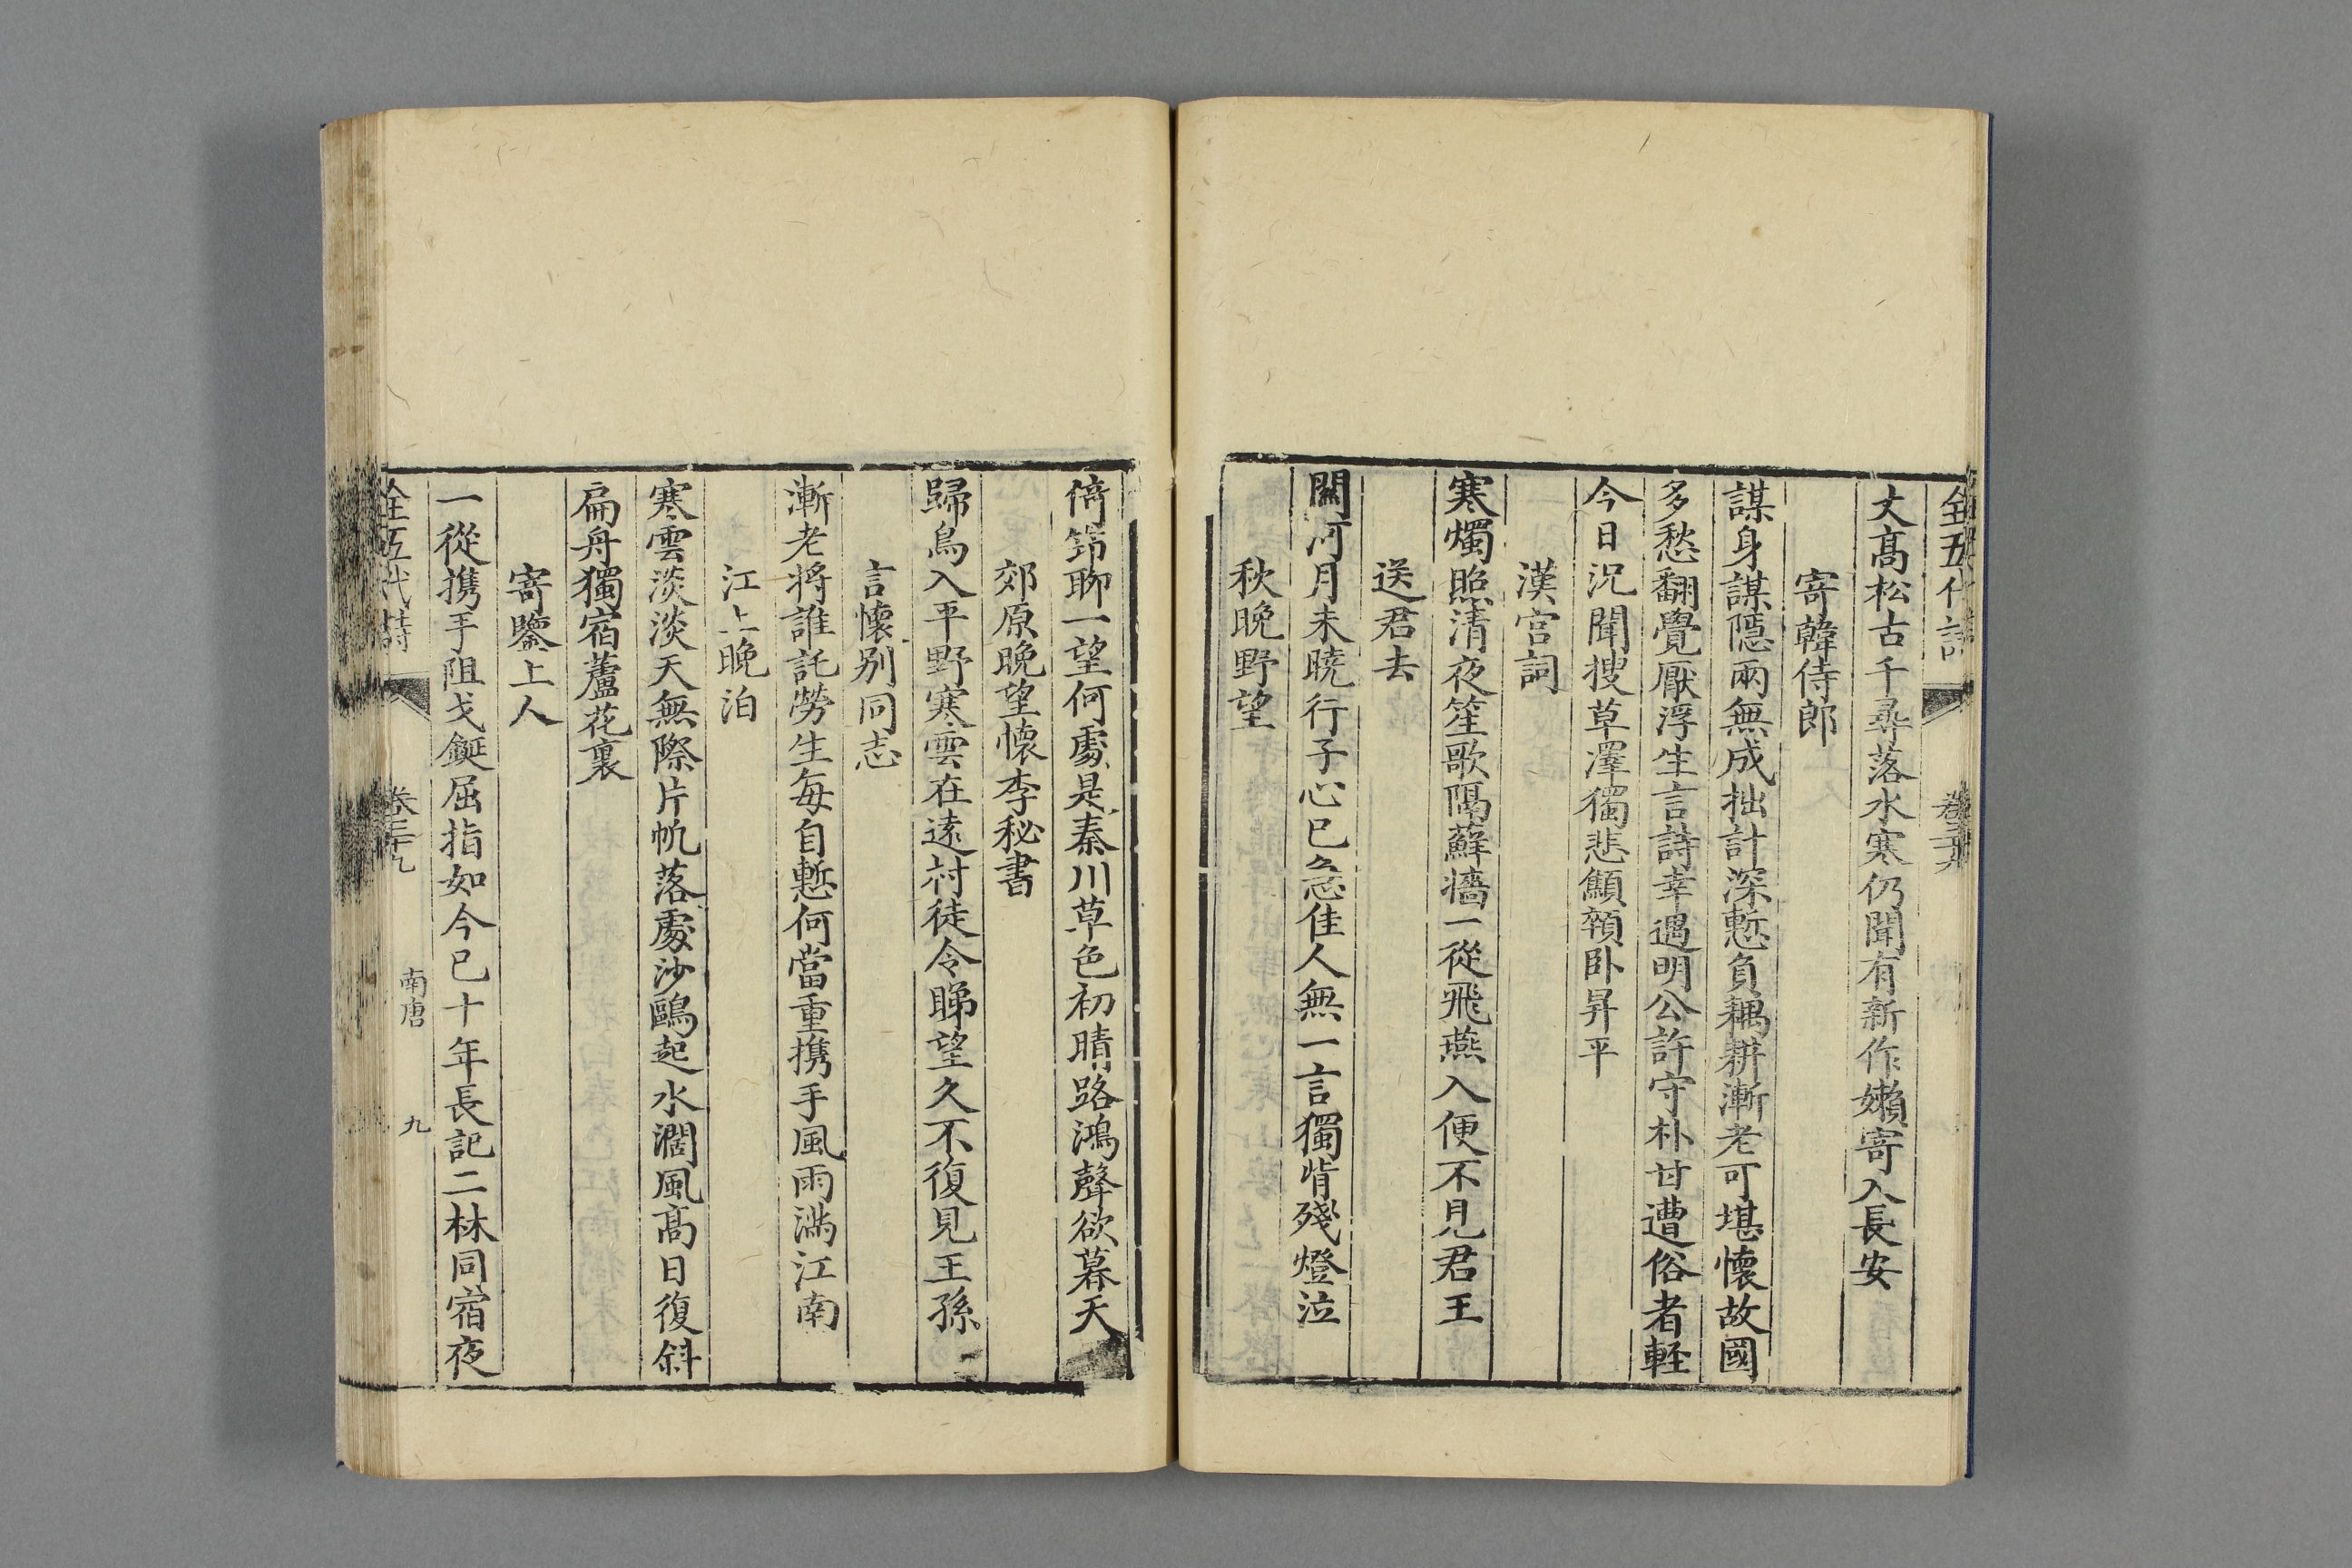 全五代詩
卷三十九
丈高松古千尋落水寒仍聞有新作嬾寄入長安
寄韓侍郎
謀身謀隱兩無成拙計深慙負耦耕漸老可堪懷故國
多愁翻覺厭浮生言詩幸遇明公許守朴甘遭俗者輕
今日況聞搜草澤獨悲顦顇臥昇平
漢宮詞
寒燭照清夜笙歌隔蘚牆一從飛燕入便不見君王
送君去
關河月未曉行子心已急佳人無一言獨背殘燈泣
秋晚野望
倚筇聊一望何處是秦川草色初晴路鴻聲欲暮天
郊原晚望懷李秘書
歸鳥入平野寒雲在遠村徒令睇望久不復見王孫
言懷別同志
漸老將誰託勞生每自慙何當重攜手風雨滿江南
江上晚泊
寒雲淡淡天無際片帆落處沙鷗起水濶風高日復斜
扁舟獨宿蘆花裏
寄鑒上人
一從攜手阻戈鋋屈指如今已十年長記二林同宿夜
全五代詩
卷三十九
南唐
九